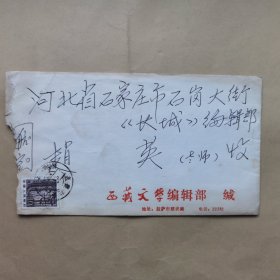 河北省石家庄市石岗大街
《长城》编辑部
赵英(老师)收
西藏文学编辑部 缄
地址：拉萨市